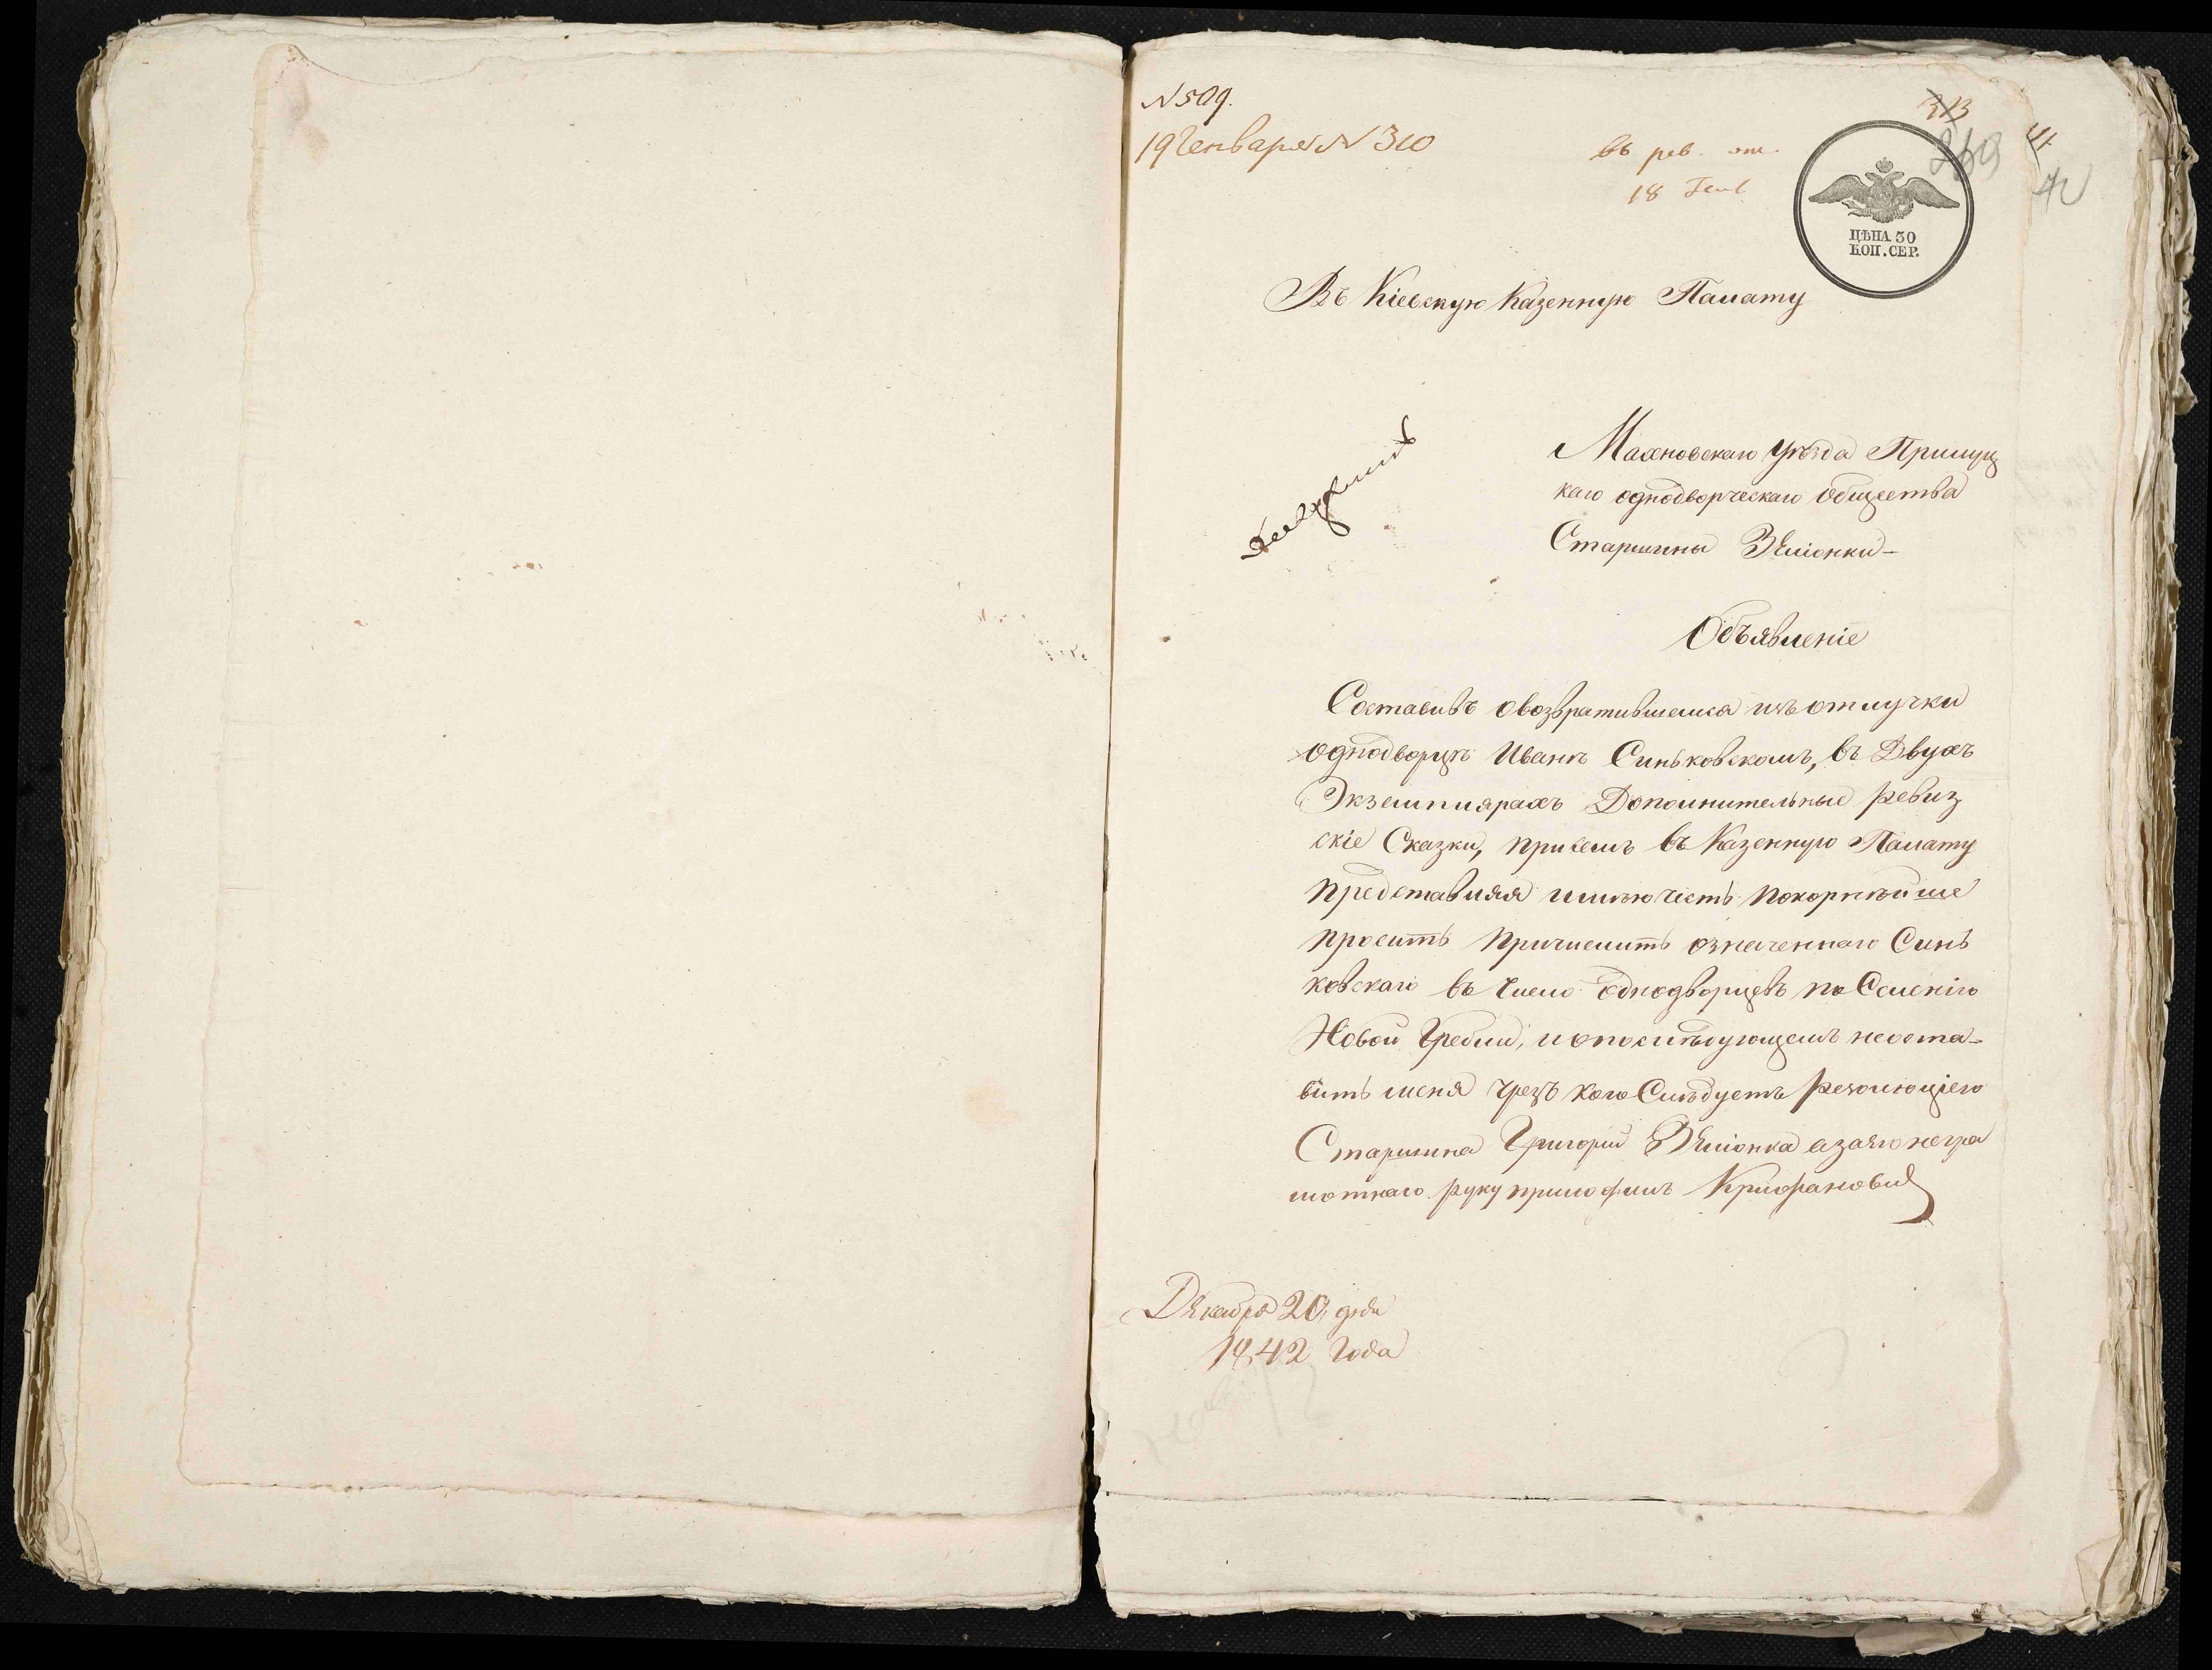 N 509.
19 Генваря N 310
въ рев. от.
18 Генв
313
269
ЦѢНА 30
КОП. СЕР.
Въ Кіевскую Казенную Палату
Махновскаго уѣзда Прилуц
каго однодворческаго общества
Старшины Зеліонки-
Объявленіе
Составивъ овозвратившемся изъ отлучки
однодворцѣ Иванѣ Синьковскомъ, въ Двухъ
Экземплярахъ Дополнительные ревиз
скіе Сказки, при семъ въ Казенную Палату
представляя имѣю честь покорнѣйше
просить причислить означеннаго Синь
ковскаго въ число однодворцевъ по Селенію
Новой Гребли, и опослѣдующемъ неоста-
вить меня чрезъ кого Слѣдуетъ резолюціею
Старшина Григорій Зеліонка азаего негра
мотнаго руку приложилъ
Декабря 20, дня
1842 Года